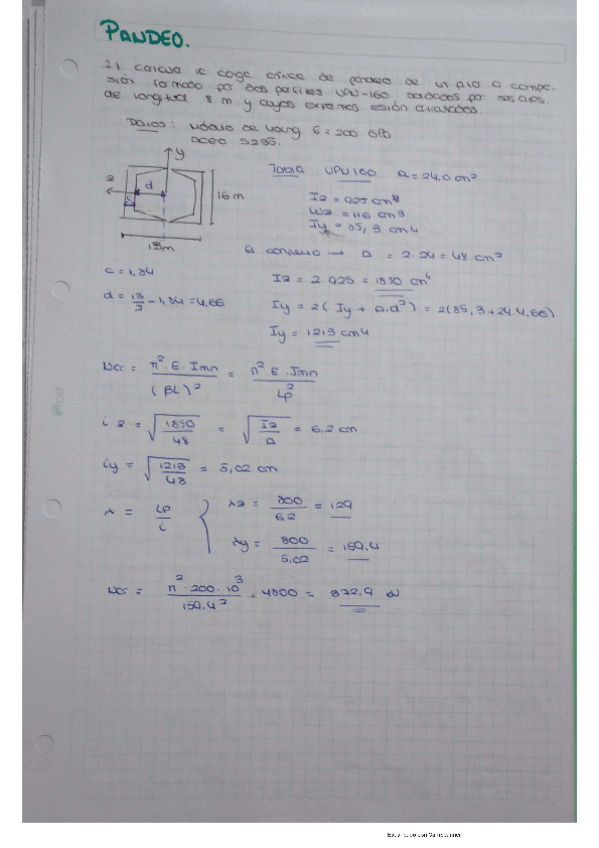 PANDEO.
21. Calcula la carga crítica de pandeo de un pilar a compre-
sión formado por dos perfiles UPN-160 soldados por sus alas.
de longitud 8 m y cuyos extremos están articulados.
Datos: Módulo de Young E = 200 GPa
acero S235.
Tabla UPN 160 A = 24,0 cm²
y
z
d
16 m
13 m
Iz = 925 cm⁴
Wz = 116 cm³
Iy = 85,3 cm4
El conjunto → A = 2.24 = 48 cm²
c = 1,84
Iz = 2.925 = 1850 cm⁴
d = 13/2 - 1,84 = 4,66
Iy = 2(Iy + A.d²) = 2(85,3 + 24.4,66)
Iy = 1213 cm4
Ncr = π².E.Imn / (βL)² = π² E.Imn / Lp²
i z = √1850/48 = √Iz/A = 6.2 cm
iy = √1213/48 = 5,02 cm
λ = Lp/i
λz = 800/6,2 = 129
λy = 800/5,02 = 159.4
Ncr = π².200.10³/159.4² . 4800 = 372,9